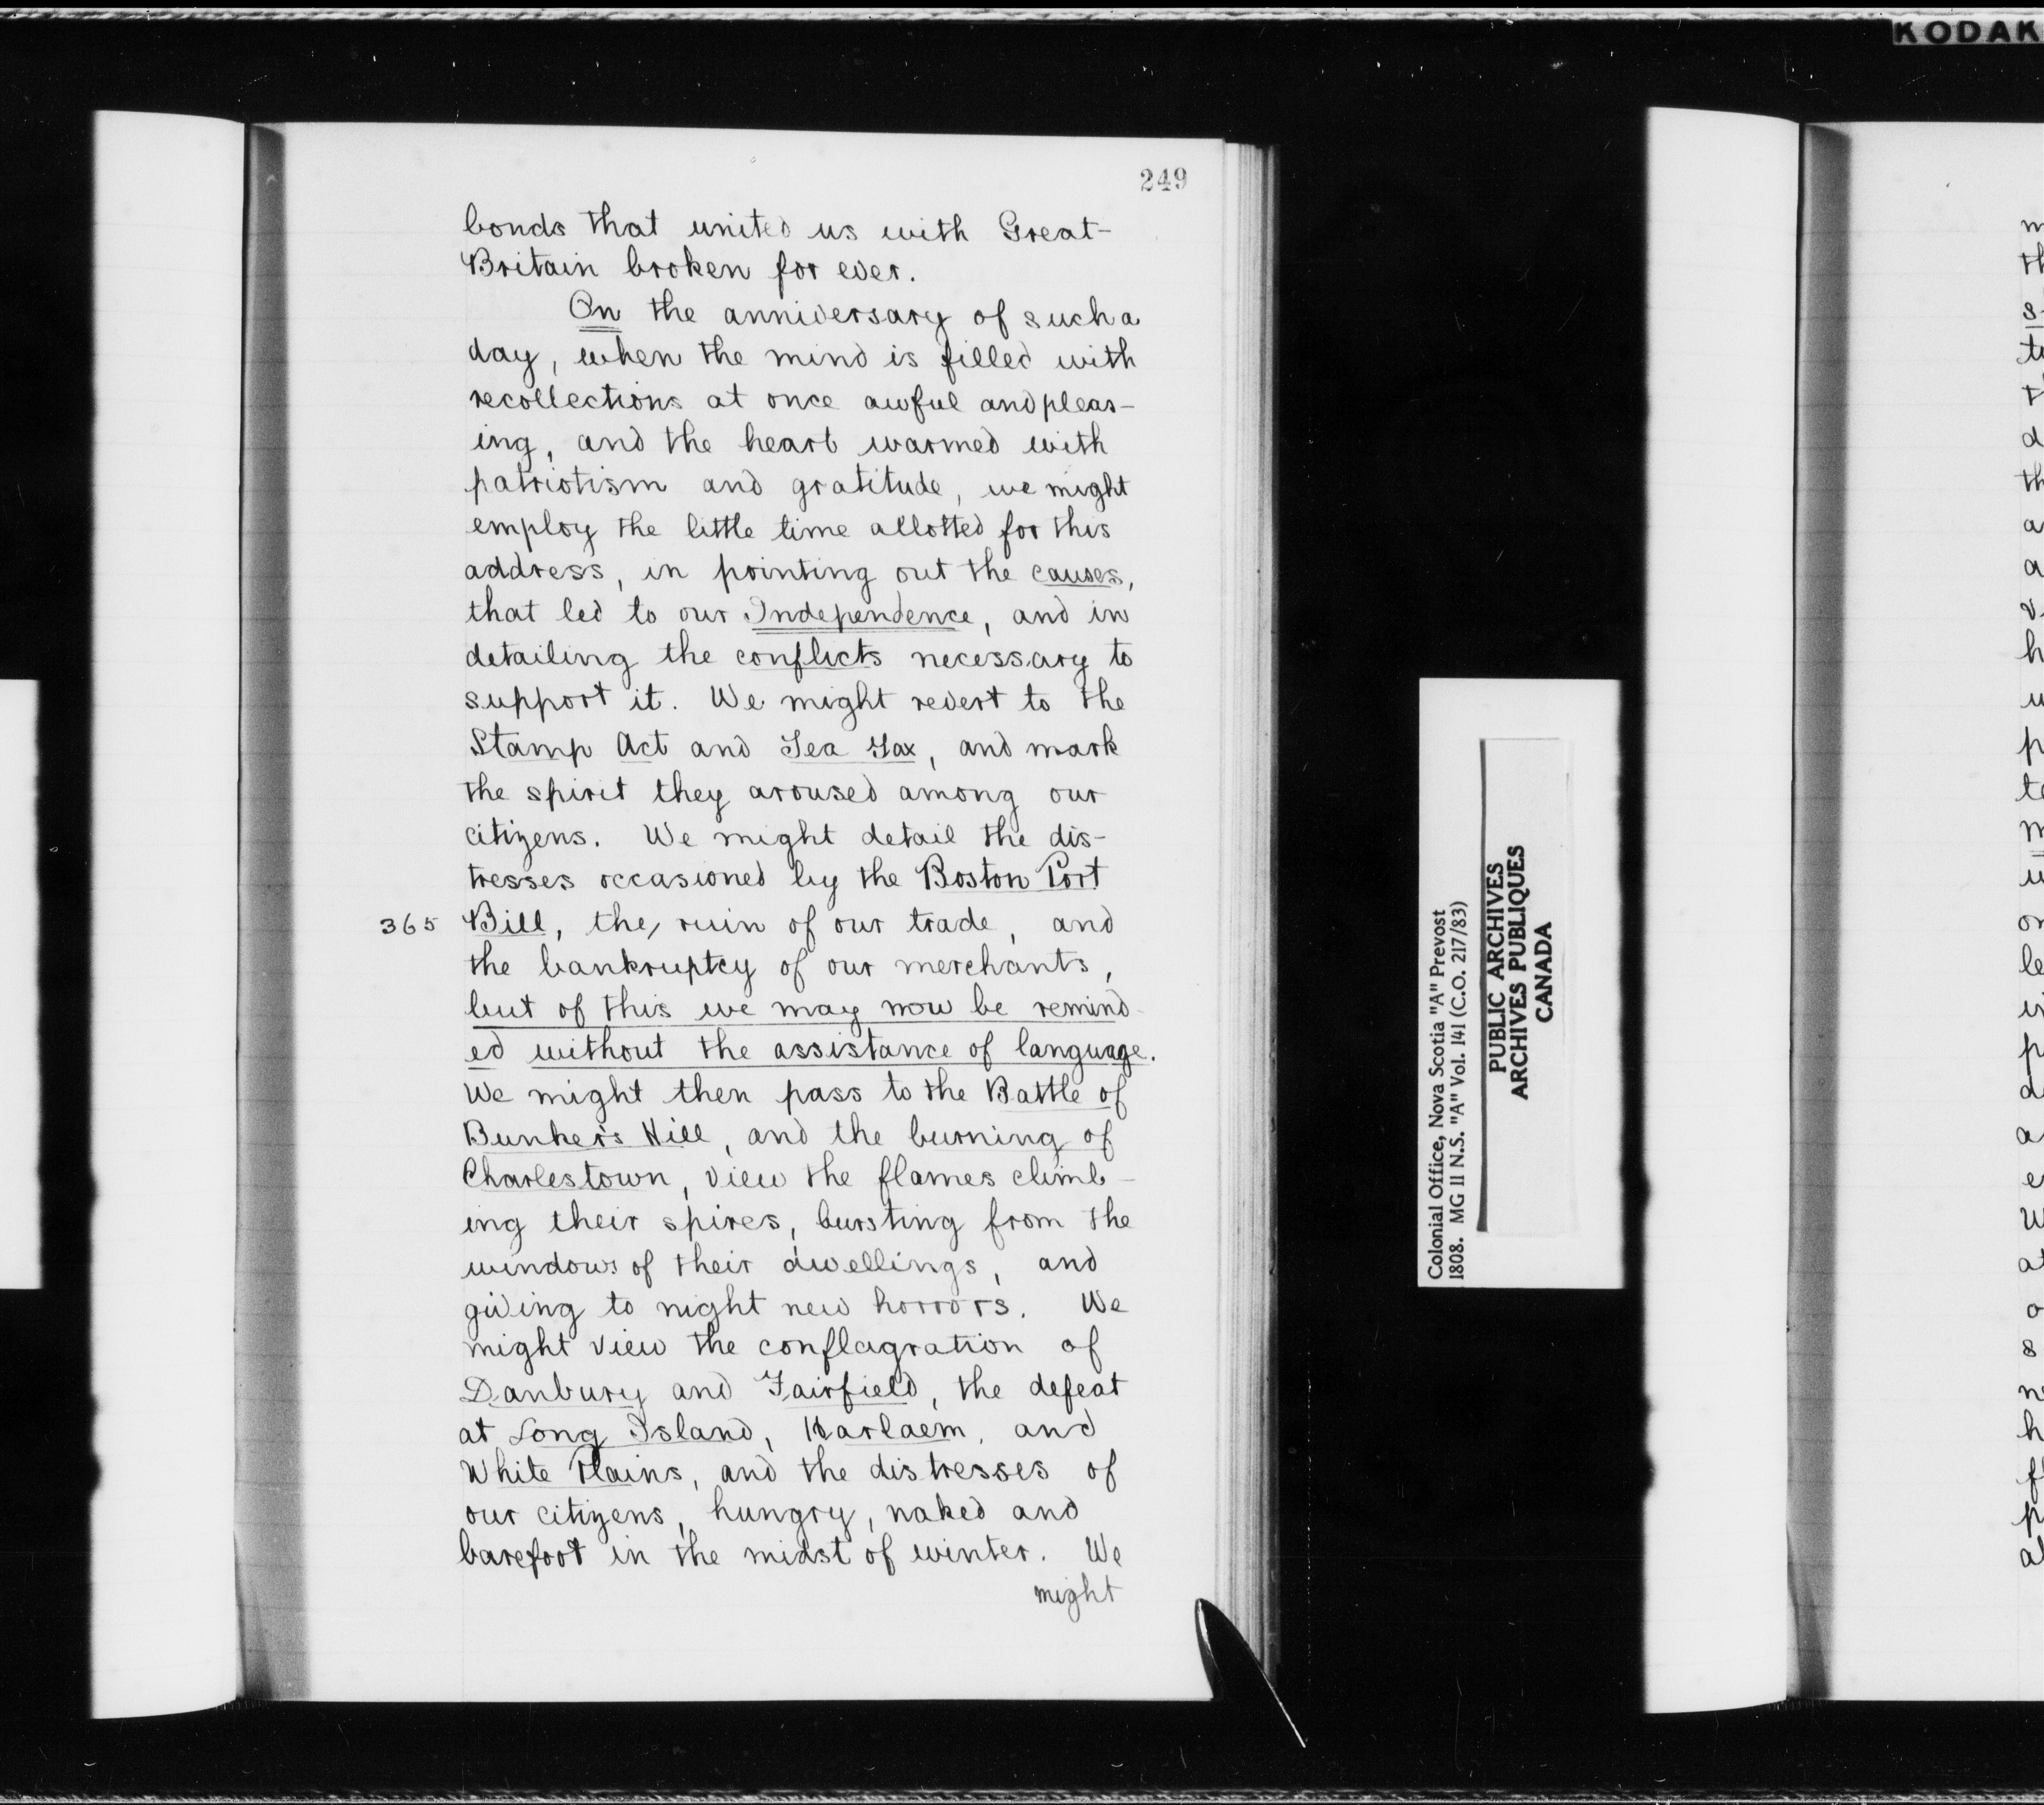 KODAK
249
bonds that united us with Great-
Britain broken for ever.
On the anniversary of such a
day, when the mind is filled with
recollections at once awful and pleas-
ing, and the heart warmed with
patriotism and gratitude, we might
employ the little time allotted for this
address, in pointing out the causes,
that led to our Independence, and in
detailing the conflicts necessary to
support it. We might revert to the
Stamp Act and Tea Tax, and mark
the spirit they aroused among our
citizens. We might detail the dis-
tresses occasioned by the Boston Port
365 Bill, the, ruin of our trade, and
the bankruptcy of our merchants,
but of this we may now be remind-
ed without the assistance of language.
We might then pass to the Battle of
Bunker's Hill, and the burning of
Charlestown, view the flames climb-
ing their spires, bursting from the
windows of their dwellings, and
giving to night new horrors. We
might view the conflagration of
Danbury and Fairfield, the defeat
at Long Island, Harlaem, and
White Plains, and the distresses of
our citizens, hungry, naked and
barefoot in the midst of winter. We
might
Colonial Office, Nova Scotia "A" Prevost
1808. MG 11 N.S. "A" Vol. 141 (C.O. 217/83)
PUBLIC ARCHIVES
ARCHIVES PUBLIQUES
CANADA